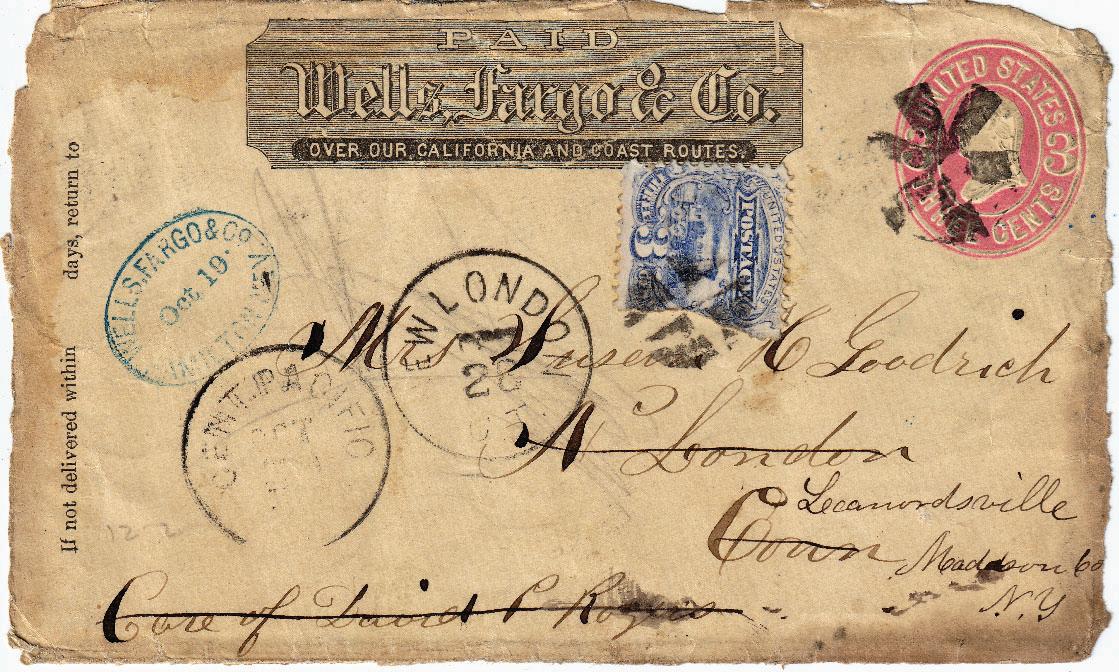 PAID
Wells, Fargo & Co.
OVER OUR CALIFORNIA AND COAST ROUTES.
UNITED STATES
3 3
THREE CENTS
UNITED STATES
POSTAGE
3
If not delivered within days, return to
WELLS, FARGO & CO
Oct 19
NEW LONDON
CENT. PACIFIC
OCT
Mrs H Goodrich
N London
Conn
Leanordsville
Maddson Co
N.Y
Care of David P Rogers
12 2